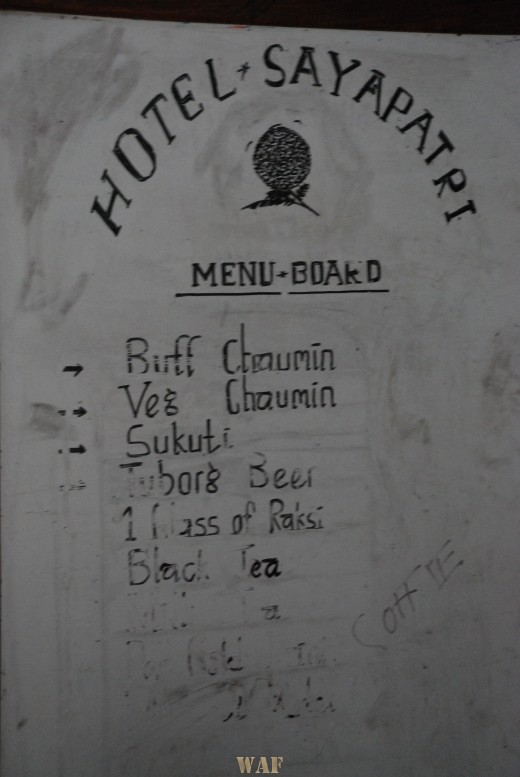 HOTEL * SAYAPATRI
MENU-BOARD
→ Buff Chaumin
→ Veg Chaumin
→ Sukuti
→ Tuborg Beer
1 Glass of Raksi
Black Tea
COFFEE
WAF